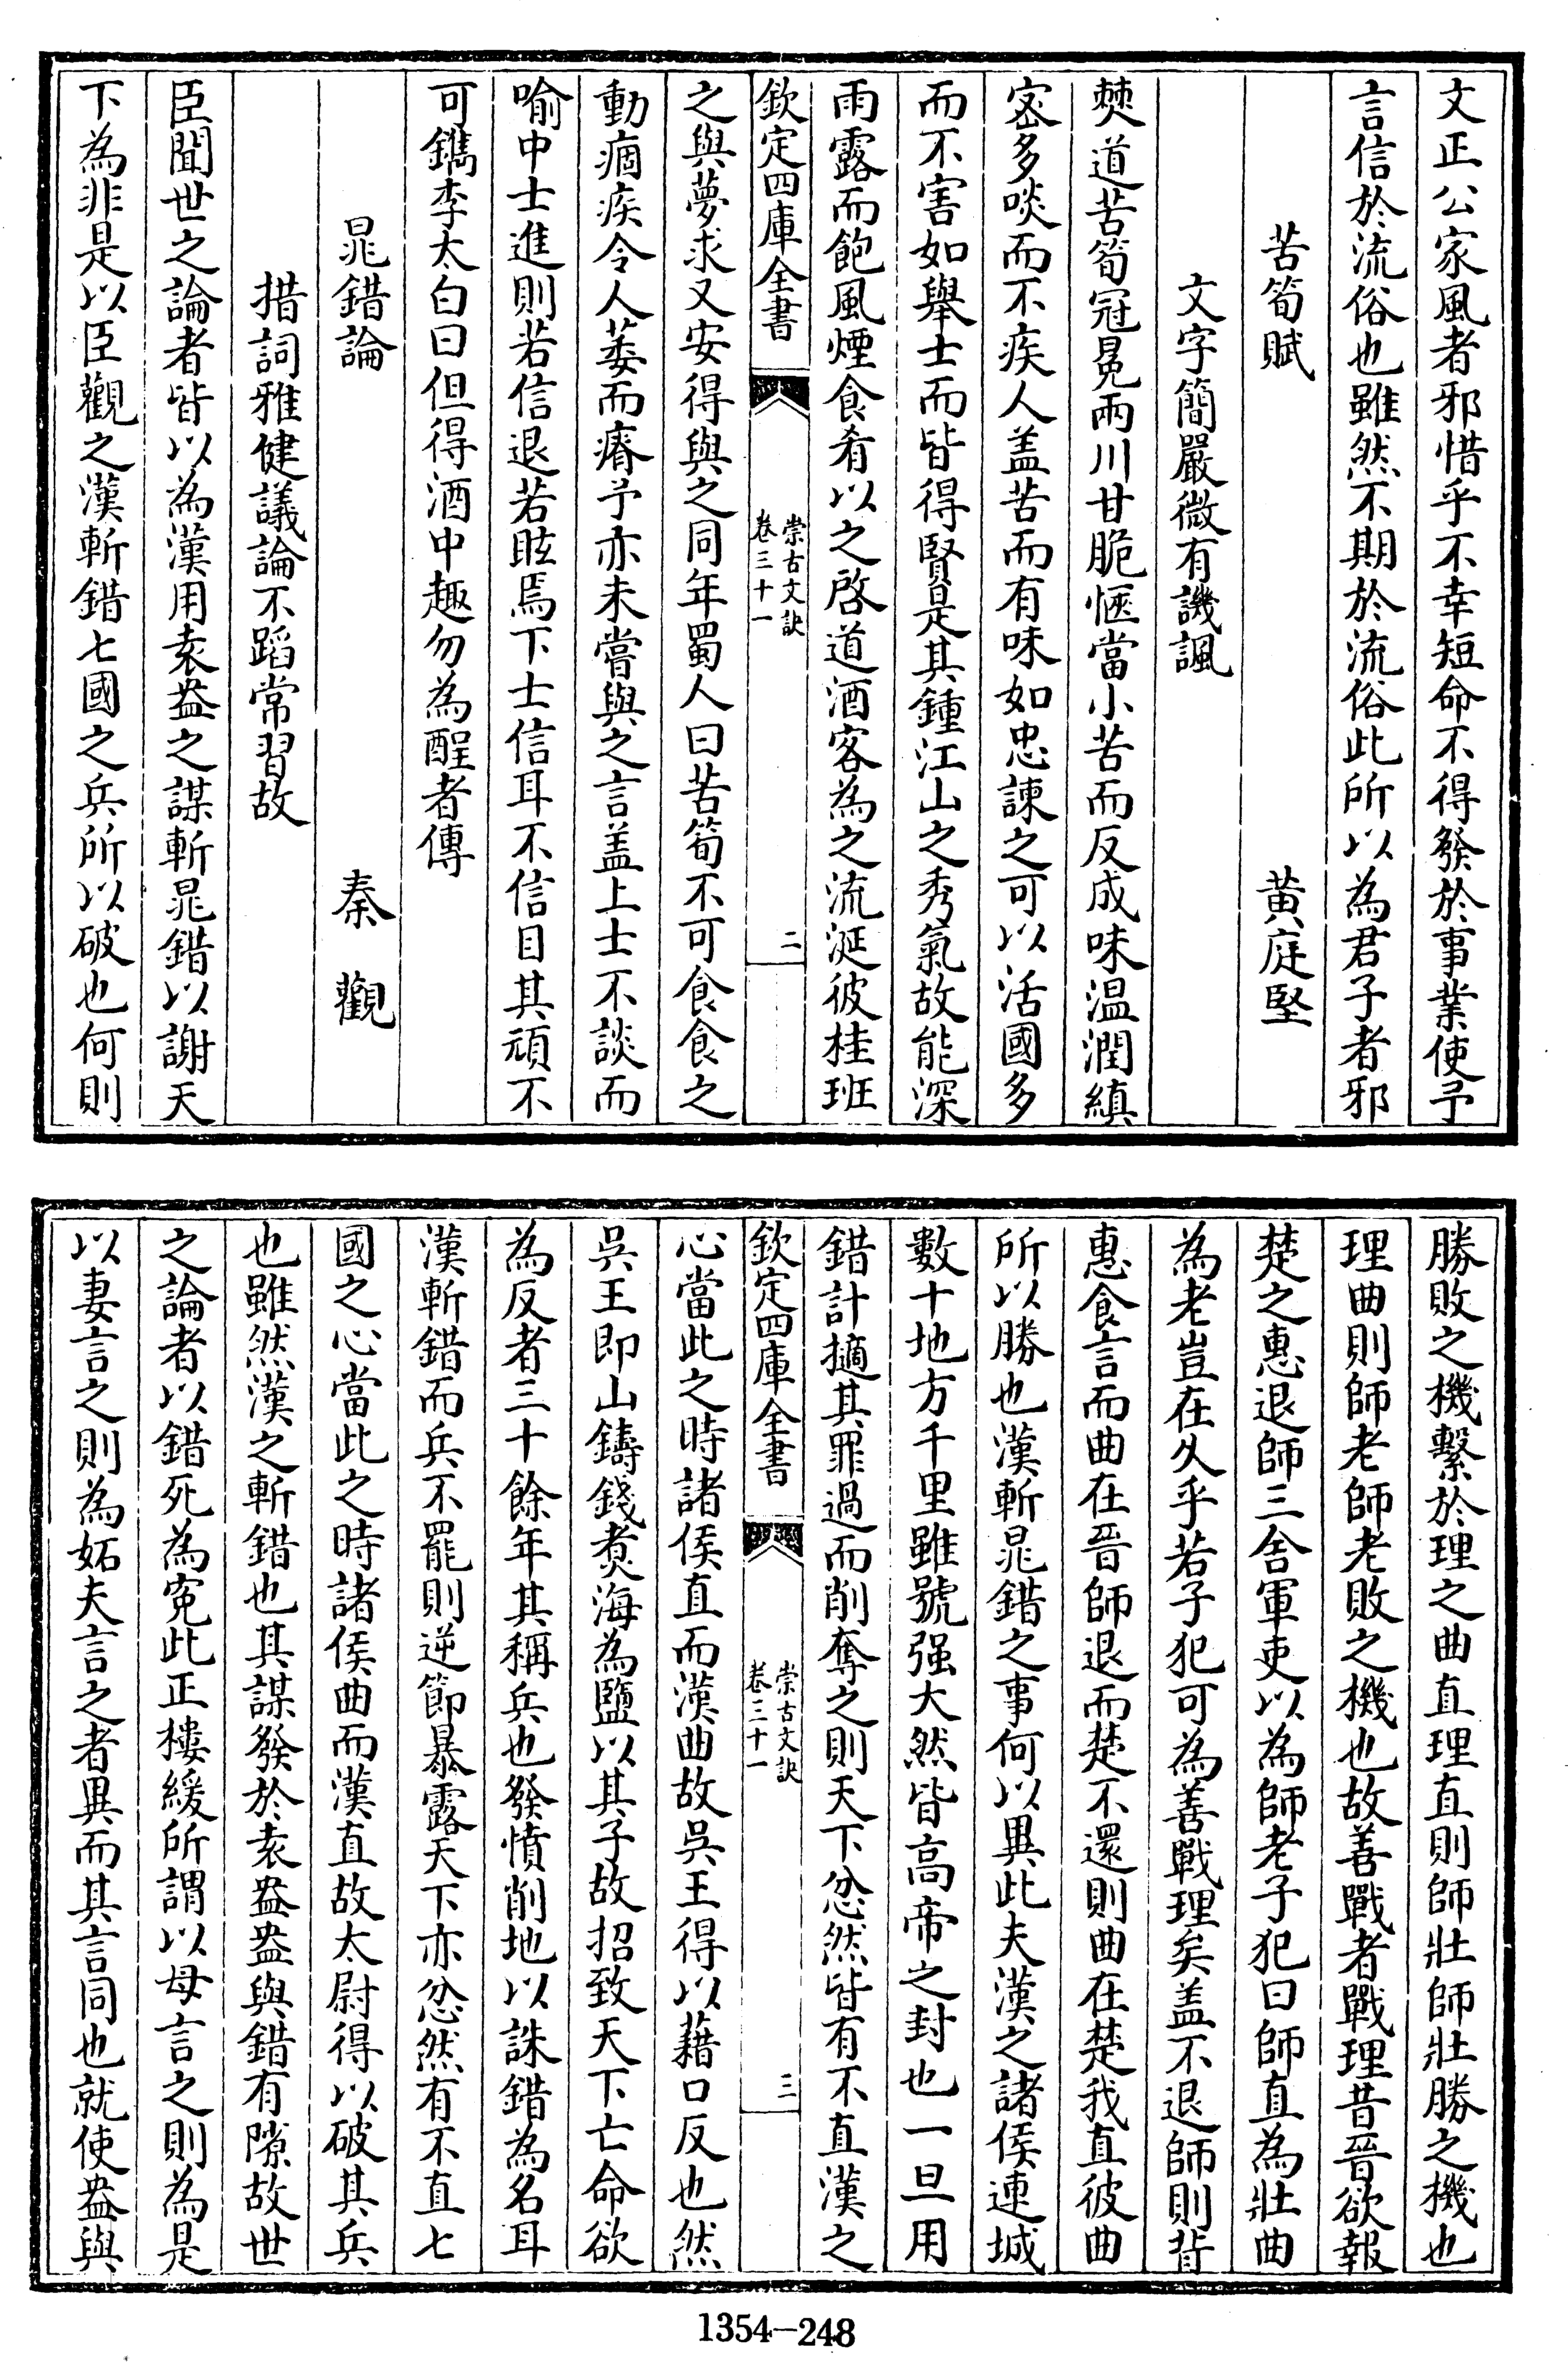 文正公家風者邪惜乎不幸短命不得發於事業使予
言信於流俗也雖然不期於流俗此所以為君子者邪
苦筍賦 黄庭堅
文字簡嚴微有譏諷
僰道苦筍冠冕兩川甘脆愜當小苦而反成味温潤縝
宻多啖而不疾人盖苦而有味如忠諫之可以活國多
而不害如舉士而皆得賢是其鍾江山之秀氣故能深
雨露而飽風煙食肴以之啓道酒客為之流涎彼桂班
欽定四庫全書 崇古文訣 卷三十一 二
之與夢求又安得與之同年蜀人曰苦筍不可食食之
動痼疾令人萎而瘠予亦未嘗與之言盖上士不談而
喻中士進則若信退若眩焉下士信耳不信目其頑不
可鐫李太白曰但得酒中趣勿為醒者傳
晁錯論 秦觀
措詞雅健議論不蹈常習故
臣聞世之論者皆以為漢用袁盎之謀斬晁錯以謝天
下為非是以臣觀之漢斬錯七國之兵所以破也何則
勝敗之機繫於理之曲直理直則師壯師壯勝之機也
理曲則師老師老敗之機也故善戰者戰理昔晉欲報
楚之惠退師三舍軍吏以為師老子犯曰師直為壯曲
為老豈在久乎若子犯可為善戰理矣盖不退師則背
惠食言而曲在晉師退而楚不還則曲在楚我直彼曲
所以勝也漢斬晁錯之事何以異此夫漢之諸侯連城
數十地方千里雖號强大然皆高帝之封也一旦用
錯計擿其罪過而削奪之則天下忿然皆有不直漢之
欽定四庫全書 崇古文訣 卷三十一 三
心當此之時諸侯直而漢曲故吳王得以藉口反也然
吳王即山鑄錢煑海為鹽以其子故招致天下亡命欲
為反者三十餘年其稱兵也發憤削地以誅錯為名耳
漢斬錯而兵不罷則逆節暴露天下亦忿然有不直七
國之心當此之時諸侯曲而漢直故太尉得以破其兵
也雖然漢之斬錯也其謀發於袁盎盎與錯有隙故世
之論者以錯死為寃此正樓緩所謂以母言之則為是
以妻言之則為妬夫言之者異而其言同也就使盎與
1354-248